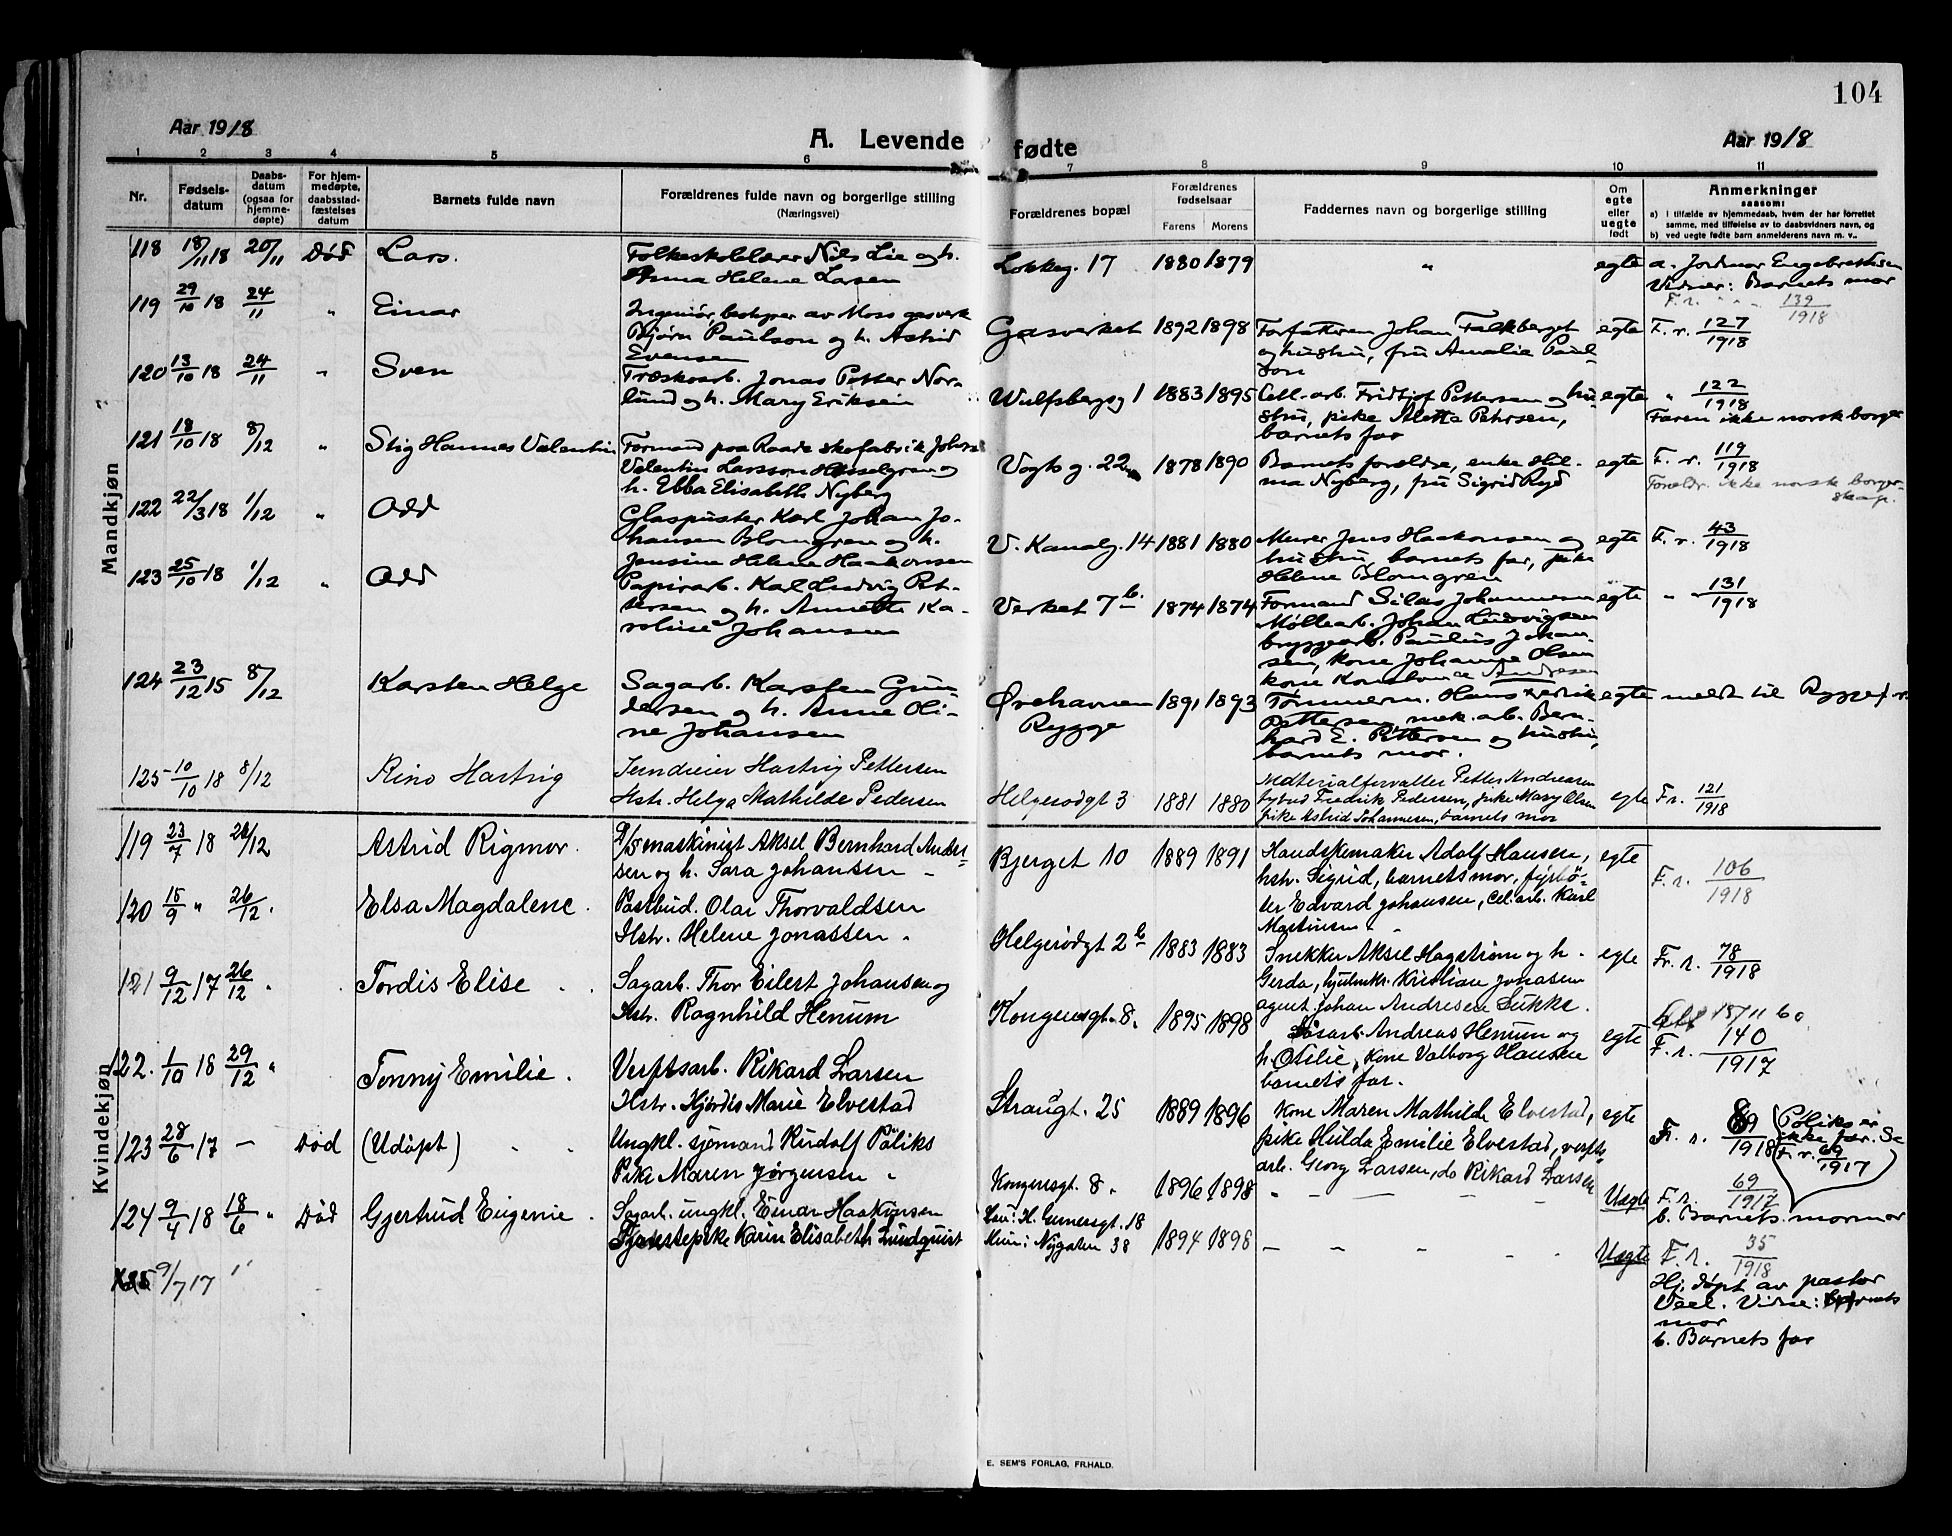 104
Aar 1918
A. Levende fødte
Aar 1918
1 2 3 4 5 6 7 8 9 10 11
Nr.
Fødsels-
datum
Daabs-
datum
(ogsaa for
hjemme-
døpte)
For hjem-
medøpte,
daabsstad-
fæstelses
datum
Barnets fulde navn
Forældrenes fulde navn og borgerlige stilling
(Næringsvei)
Forældrenes bopæl
Forældrenes
fødselsaar
Farens Morens
Faddernes navn og borgerlige stilling
Om
egte
eller
uegte
født
Anmerkninger
saasom:
a) I tilfælde av hjemmedaab, hvem der har forrettet
samme, med tilføielse av to daabsvidners navn, og
b) ved uegte fødte barn anmelderens navn m. v..
Mandkjøn
118 18/11 18 20/11 Død Lars.
Folkeskolelærer Nils Lie og h.
Anna Helene Larsen
Lokkeg. 17 1880 1879 " egte
a. Jordmor Engebrethsen
Vidner: Barnets mor
F. r. 139/1918
119 29/10 18 24/11 " Einar
Ingeniør, bestyrer av Moss gasverk
Bjørn Paulson og h. Astrid
Evensen
Gasverket 1892 1898
Forfatteren Johan Falkberget
og hustru, fru Amalie Paul-
son
egte F. r. 127/1918
120 13/10 18 24/11 " Sven
Træskoarb. Jonas Petter Nor-
lund og h. Mary Eriksen
Wulfsbergsg 1 1883 1895
Cell. arb. Fridtjof Pettersen og hu-
stru, pike Alette Petersen,
barnets far
egte " 122/1918
Faren ikke norsk borger
121 18/10 18 8/12 " Stig Hannes Valentin
Formand paa Raade skofabrik Johan
Valentin Larsson Hesselgren og
h. Ebba Elisabeth Nyberg
Vogts g. 22 1878 1890
Barnets forældre, enke Hil-
ma Nyberg, fru Sigrid Ryd
egte F. r. 119/1918
Foreldr. ikke norsk borger-
skap.
122 22/3 18 1/12 " Odd
Glaspuster Karl Johan Jo-
hansen Blomgren og h.
Jensine Helene Haakonsen
V. Kanalg. 14 1881 1880
Murer Jens Haakonsen og
hustru barnets far, pike
Helene Blomgren
egte F. r. 43/1918
123 25/10 18 1/12 " Odd
Papirarb. Karl Ludvig Pet-
tersen og h. Annette Ka-
roline Johansen
Verket 7 b. 1874 1874
Formand Silas Johannesen
Møllearb. Johan Ludvigsen
bryggearb. Paulus Johan-
sen, kone Johanne Olsen
kone Konstance Andresen
egte " 131/1918
124 23/12 15 8/12 Karsten Helge
Sagarb. Karsten Gun-
dersen og h. Anne Oli-
ne Johansen
Ørehavnen
Rygge
1891 1893
Tømmerm. Hans Fredrik
Pettersen, mek. arb. Bern-
hard E. Pettersen og hustru,
barnets mor.
egte meldt til Rygge f. r.
125 10/10 18 8/12 Rino Hartvig
Jerndreier Hartvig Pettersen
Hstr. Helga Mathilde Pedersen
Helgerødgt 3 1881 1880
Materialforvalter Petter Andreasen
bybud Fredrik Pedersen, pike Mary Olsen
pike Astrid Johannesen, barnets mor
egte Fr. 121/1918
Kvindekjøn
119 23/7 18 26/12 Astrid Rigmor.
D/S maskinist Aksel Bernhard Ander-
sen og h. Sara Johansen -
Bjerget 10 1889 1891
Handskemaker Adolf Hansen,
hstr. Sigrid, barnets mor, fyrbø-
ter Edvard Johansen, cel. arb. Karl
Martinsen
egte F. r. 106/1918
120 15/9 " 26/12. Elsa Magdalene.
Postbud. Olar Thorvaldsen
Hstr. Helene Jonassen.
Helgerødgt 2 b 1883 1883
Snekker Aksel Hagstrøm og h.
Gerda, hjulmkr. Kristian Jonasen
agent. Johan Andresen Lükke.
egte Fr. r. 78/1918
121 9/12 17 26/12 " Tordis Elise
Sagarb. Thor Eilert Johansen og
Hstr. Ragnhild Henum
Kongensgt. 8. 1895 1898
Andreas Henum og
h. Otilie, kone Valborg Hansen
barnets far.
egte 18/11 60
F. r. 140/1917
122. 1/10 18 29/12 " Tonny Emilie.
Verftsarb. Rikard Larsen
Hstr. Hjørdis Marie Elvestad
Strandgt. 25 1889 1896
Kone Maren Mathilde Elvestad,
pike Hulda Emilie Elvestad, verfts-
arb. Georg Larsen, do Rikard Larsen
egte Fr. r. 89/1918
123 28/6 17 — Død (Udøpt)
Ungkl. sjømand Rudolf Päliks
Pike Maren Jørgensen
Kongensgt. 8. 1896 1898 Uegte
F. r. 69/1917
b. Barnets mormor
(Poliks er
ikke far. Se
F. r. 69/1917)
124 9/4 18 18/6 " Død Gjertrud Eugenie.
Sagarb. ungkl. Einar Haakonsen
Tjenestepike Karin Elisabeth Lundquist
Han: H. Gernersgt. 18
Hun: Nygaten 38
1894 1898 Uegte
F. r. 35/1918
Hj. døpt av pastor
Veel. Vidne: Barnets
mor
b. Barnets far
9/7 17 "
E. SEM'S FORLAG, FR.HALD.